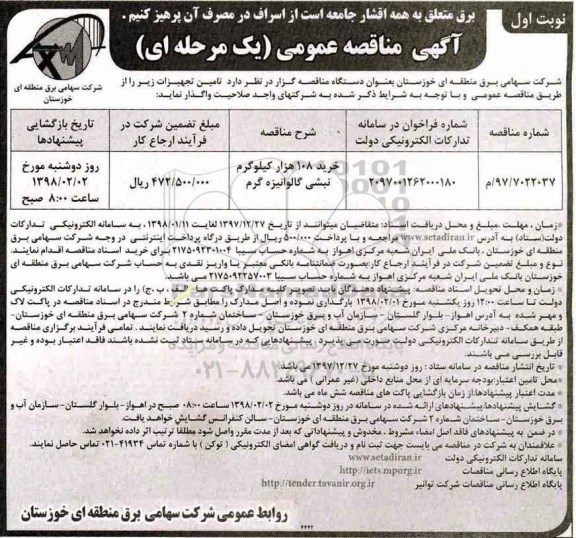 نوبت اول
برق متعلق به همه اقشار جامعه است از اسراف در مصرف آن پرهیز کنیم .
آگهی مناقصه عمومی (یک مرحله ای)
شرکت سهامی برق منطقه ای
خوزستان
شرکت سهامی برق منطقه ای خوزستان بعنوان دستگاه مناقصه گزار در نظر دارد تامین تجهیزات زیر را از
طریق مناقصه عمومی و با توجه به شرایط ذکر شده به شرکتهای واجد صلاحیت واگذار نماید:
شماره مناقصه
شماره فراخوان در سامانه تدارکات الکترونیکی دولت
شرح مناقصه
مبلغ تضمین شرکت در فرآیند ارجاع کار
تاریخ بازگشایی پیشنهادها
۹۷/۷۰۲۲۰۳۷/م
۲۰۹۷۰۰۱۲۶۲۰۰۰۱۸۰
خرید ۱۰۸ هزار کیلوگرم نبشی گالوانیزه گرم
۴۷۲/۵۰۰/۰۰۰ ریال
روز دوشنبه مورخ ۱۳۹۸/۰۲/۰۲ ساعت ۸:۰۰ صبح
•زمان ، مهلت ،مبلغ و محل دریافت اسناد: متقاضیان میتوانند از تاریخ ۱۳۹۷/۱۲/۲۷ لغایت ۱۳۹۸/۰۱/۱۱ ، به سامانه الکترونیکی تدارکات
دولت(ستاد) به آدرس www.setadiran.ir مراجعه و با پرداخت ۵۰۰/۰۰۰ ریال از طریق درگاه پرداخت اینترنتی در وجه شرکت سهامی برق
منطقه ای خوزستان ، بانک ملی ایران شعبه مرکزی اهواز به شماره حساب سیبا ۲۱۷۵۰۹۲۳۰۱۰۰۴ برای خرید اسناد مناقصه اقدام نمایند.
نوع و مبلغ تضمین شرکت در فرآیند ارجاع کار:بصورت ضمانتنامه بانکی معتبر یا واریز نقدی به حساب شرکت سهامی برق منطقه ای
خوزستان بانک ملی ایران شعبه مرکزی اهواز به شماره حساب سیبا ۲۱۷۵۰۹۲۲۵۷۰۰۳ می باشد.
• زمان و محل تحویل اسناد مناقصه: پیشنهاد دهندگان باید تصویر کلیه مدارک پاکت ها ( الف ، ب ،ج) را در سامانه تدارکات الکترونیکی
دولت تا ساعت ۱۲:۰۰ روز یکشنبه مورخ ۱۳۹۸/۰۲/۰۱ بارگذاری نموده و اصل مدارک را مطابق شرایط مندرج در اسناد مناقصه در پاکت لاک
و مهر شده به آدرس اهواز- بلوار گلستان – سازمان آب و برق خوزستان – ساختمان شماره ۲ شرکت سهامی برق منطقه ای خوزستان-
طبقه همکف- دبیرخانه مرکزی شرکت سهامی برق منطقه ای خوزستان تحویل داده و رسید دریافت نمایند . تمامی فرآیند برگزاری مناقصه
از طریق سامانه تدارکات الکترونیکی دولت صورت می پذیرد . پیشنهادهایی که در سامانه ستاد ثبت نشده باشند فاقد اعتبار بوده و غیر
قابل بررسی می باشند.
• تاریخ انتشار مناقصه در سامانه ستاد : روز دوشنبه مورخ ۱۳۹۷/۱۲/۲۷ می باشد.
•محل تامین اعتبار:بودجه سرمایه ای از محل منابع داخلی (غیر عمرانی) می باشد
• مدت اعتبار پیشنهادها:از زمان بازگشایی پاکت های مناقصه شش ماه می باشد.
• گشایش پیشنهادها:پیشنهادهای ارائه شده در سامانه در روز دوشنبه مورخ ۱۳۹۸/۰۲/۰۲ ساعت ۸:۰۰ صبح در اهواز- بلوار گلستان-سازمان آب و
برق خوزستان- ساختمان شماره ۲ شرکت سهامی برق منطقه ای خوزستان-سالن کنفرانس گشایش خواهد یافت.
• در ضمن به پیشنهادهای فاقد امضا، مشروط ، مخدوش و پیشنهاداتی که بعد از مدت مقرر واصل شود مطلقاً ترتیب اثر داده نخواهد شد.
• علاقمندان به شرکت در مناقصه می بایست جهت ثبت نام و دریافت گواهی امضای الکترونیکی ( توکن ) با شماره تماس ۴۱۹۳۴-۰۲۱ تماس حاصل نمایند.
سامانه تدارکات الکترونیکی دولت www.setadiran.ir
پایگاه اطلاع رسانی مناقصات http://iets.mporg.ir
پایگاه اطلاع رسانی مناقصات شرکت توانیر http://tender.tavanir.org.ir
روابط عمومی شرکت سهامی برق منطقه ای خوزستان